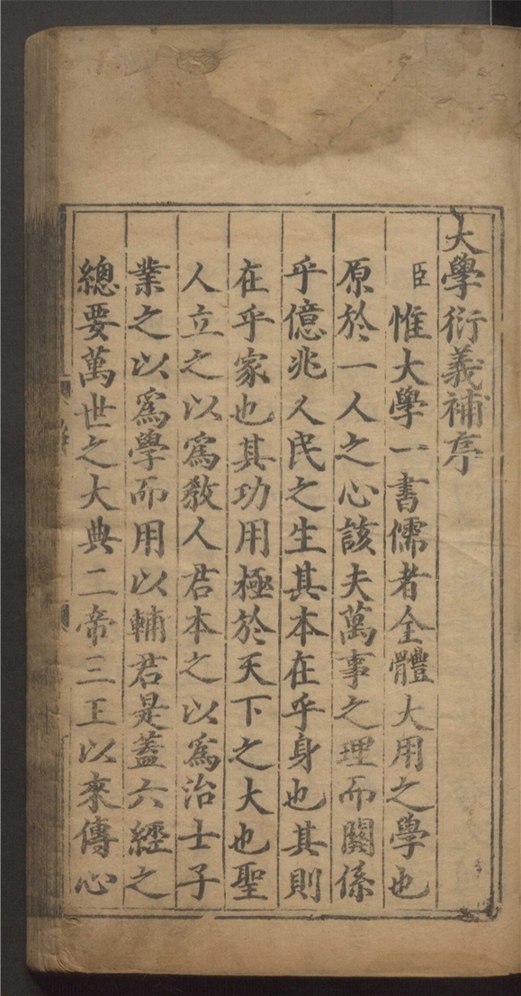 大學衍義補序
臣惟大學一書儒者全體大用之學也
原於一人之心該夫萬事之理而關係
乎億兆人民之生其本在乎身也其則
在乎家也其功用極於天下之大也聖
人立之以爲教人君本之以爲治士子
業之以爲學而用以輔君是葢六經之
總要萬世之大典二帝三王以來傳心